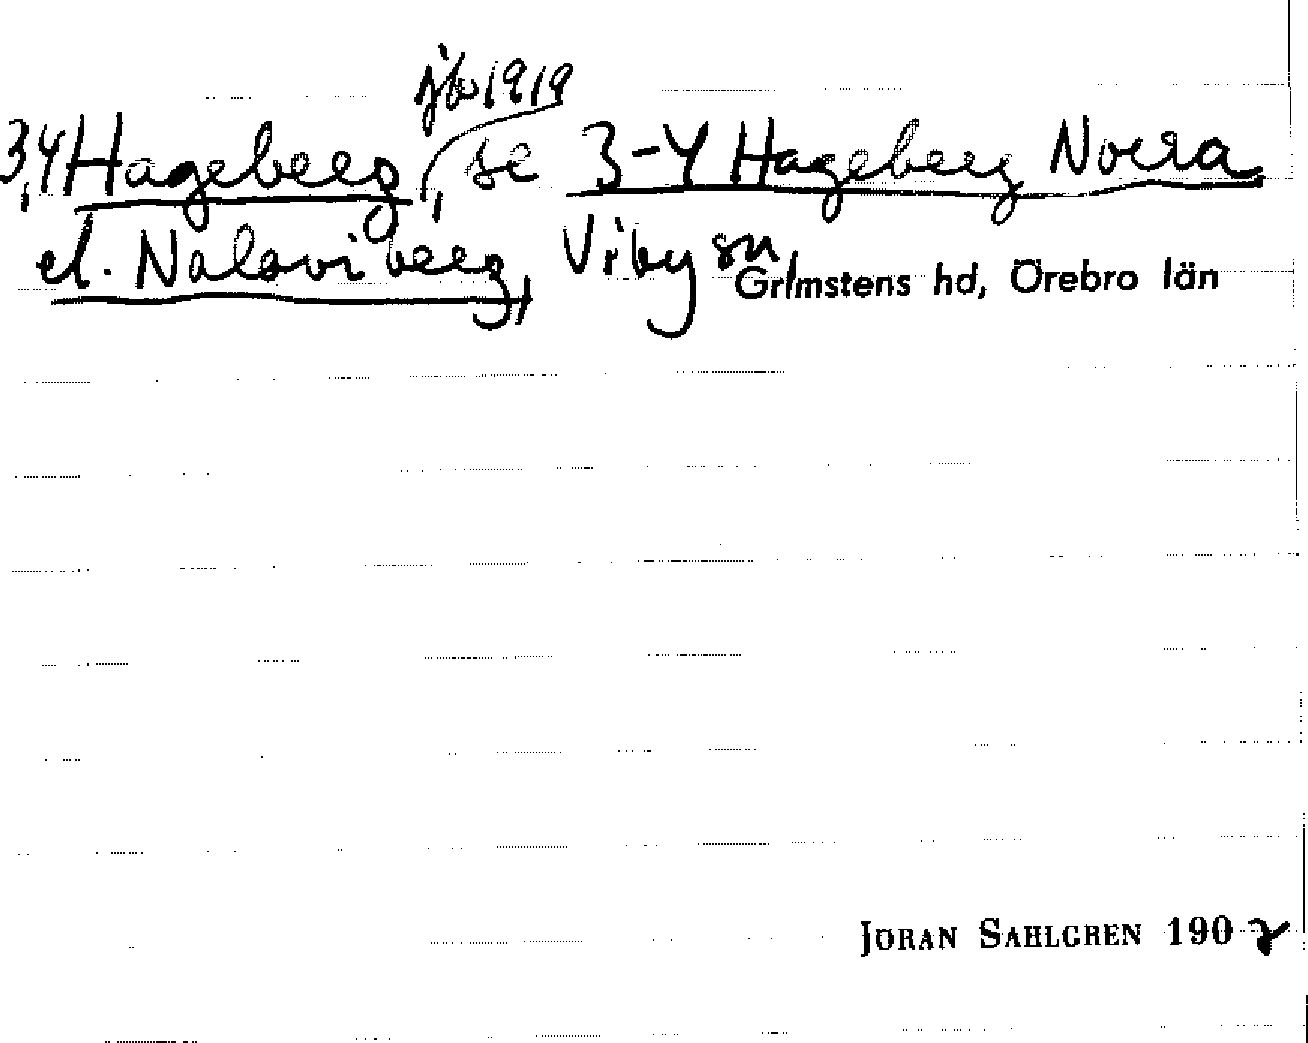 jbv 1919
3,4 Hageberg, se 3-4 Hageberg Norra
el. Nalaviberg, Viby sn,
Grimstens hd, Örebro län
JÖRAN SAHLGREN 190